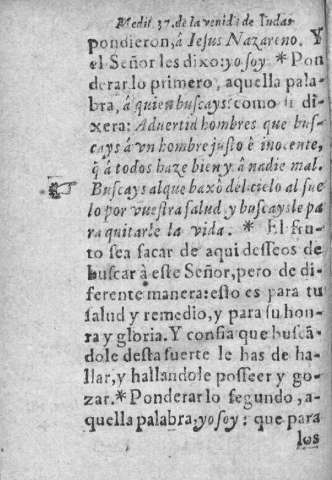 Medit. 37. de la venida de Iudas
pondieron, à Iesus Nazareno. Y
el Señor les dixo: yo soy. * Pon
derar lo primero, aquella pala-
bra, à quien buscays: como si di
xera: Aduertid hombres que bus-
cays à vn hombre justo è inocente,
q̃ à todos haze bien y à nadie mal.
Buscays al que baxò del cielo al sue
lo por vuestra salud, y buscaysle pa
ra quitarle la vida. * El fru-
to sea sacar de aqui desseos de
buscar à este Señor, pero de di-
ferente manera: esto es para tu
salud y remedio, y para su hon-
ra y gloria. Y confia que buscã-
dole desta suerte le has de ha-
llar, y hallandole posseer y go-
zar. * Ponderar lo segundo, a-
quella palabra, yo soy: que para
los